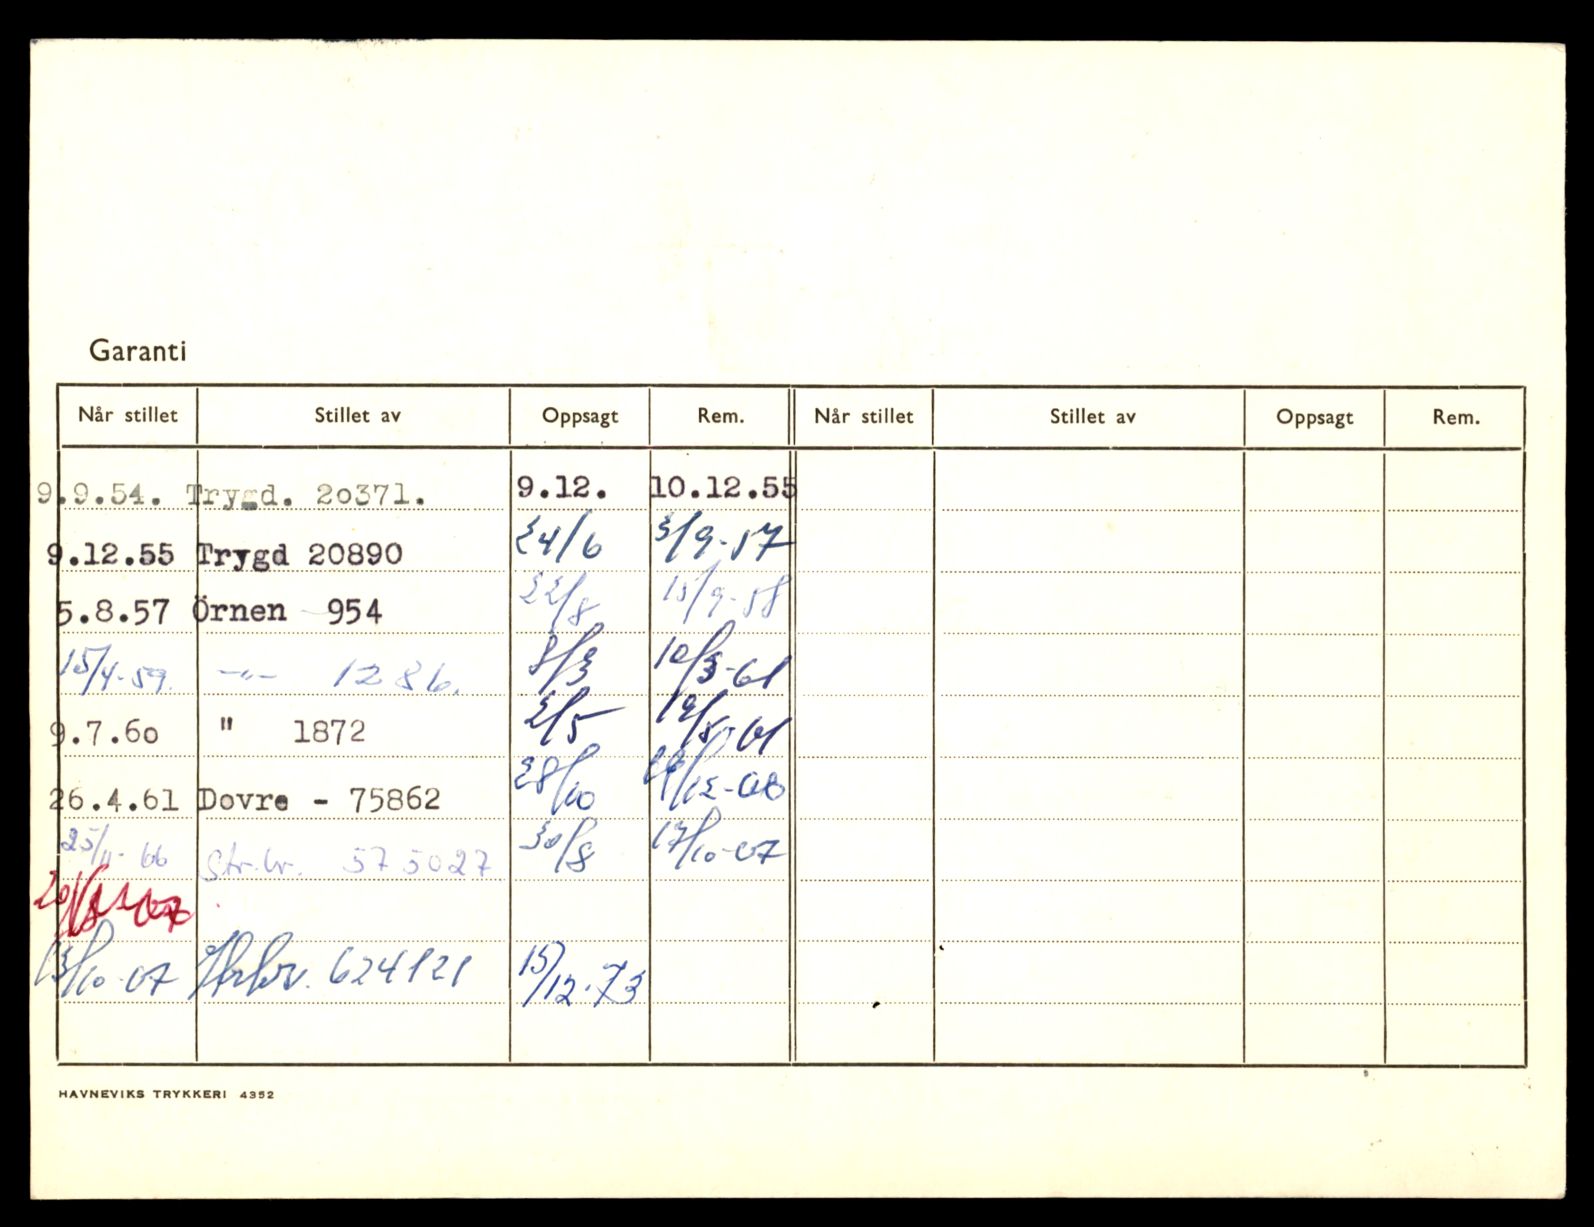 Garanti
Når stillet Stillet av Oppsagt Rem. Når stillet Stillet av Oppsagt Rem.
9.9.54. Trygd. 20371. 9.12. 10.12.55
9.12.55 Trygd 20890 24/6 3/9-57
5.8.57 Örnen 954 22/8 15/9-58
15/4-59. -"- 1286. 8/3 10/3-61
9.7.60 " 1872 2/5 12/5-61
26.4.61 Dovre - 75862 28/10
25/11-66 Str.br. 575027 30/8 17/10-67
13/10-67 Str.br. 624121 15/12-73
HAVNEVIKS TRYKKERI 4352